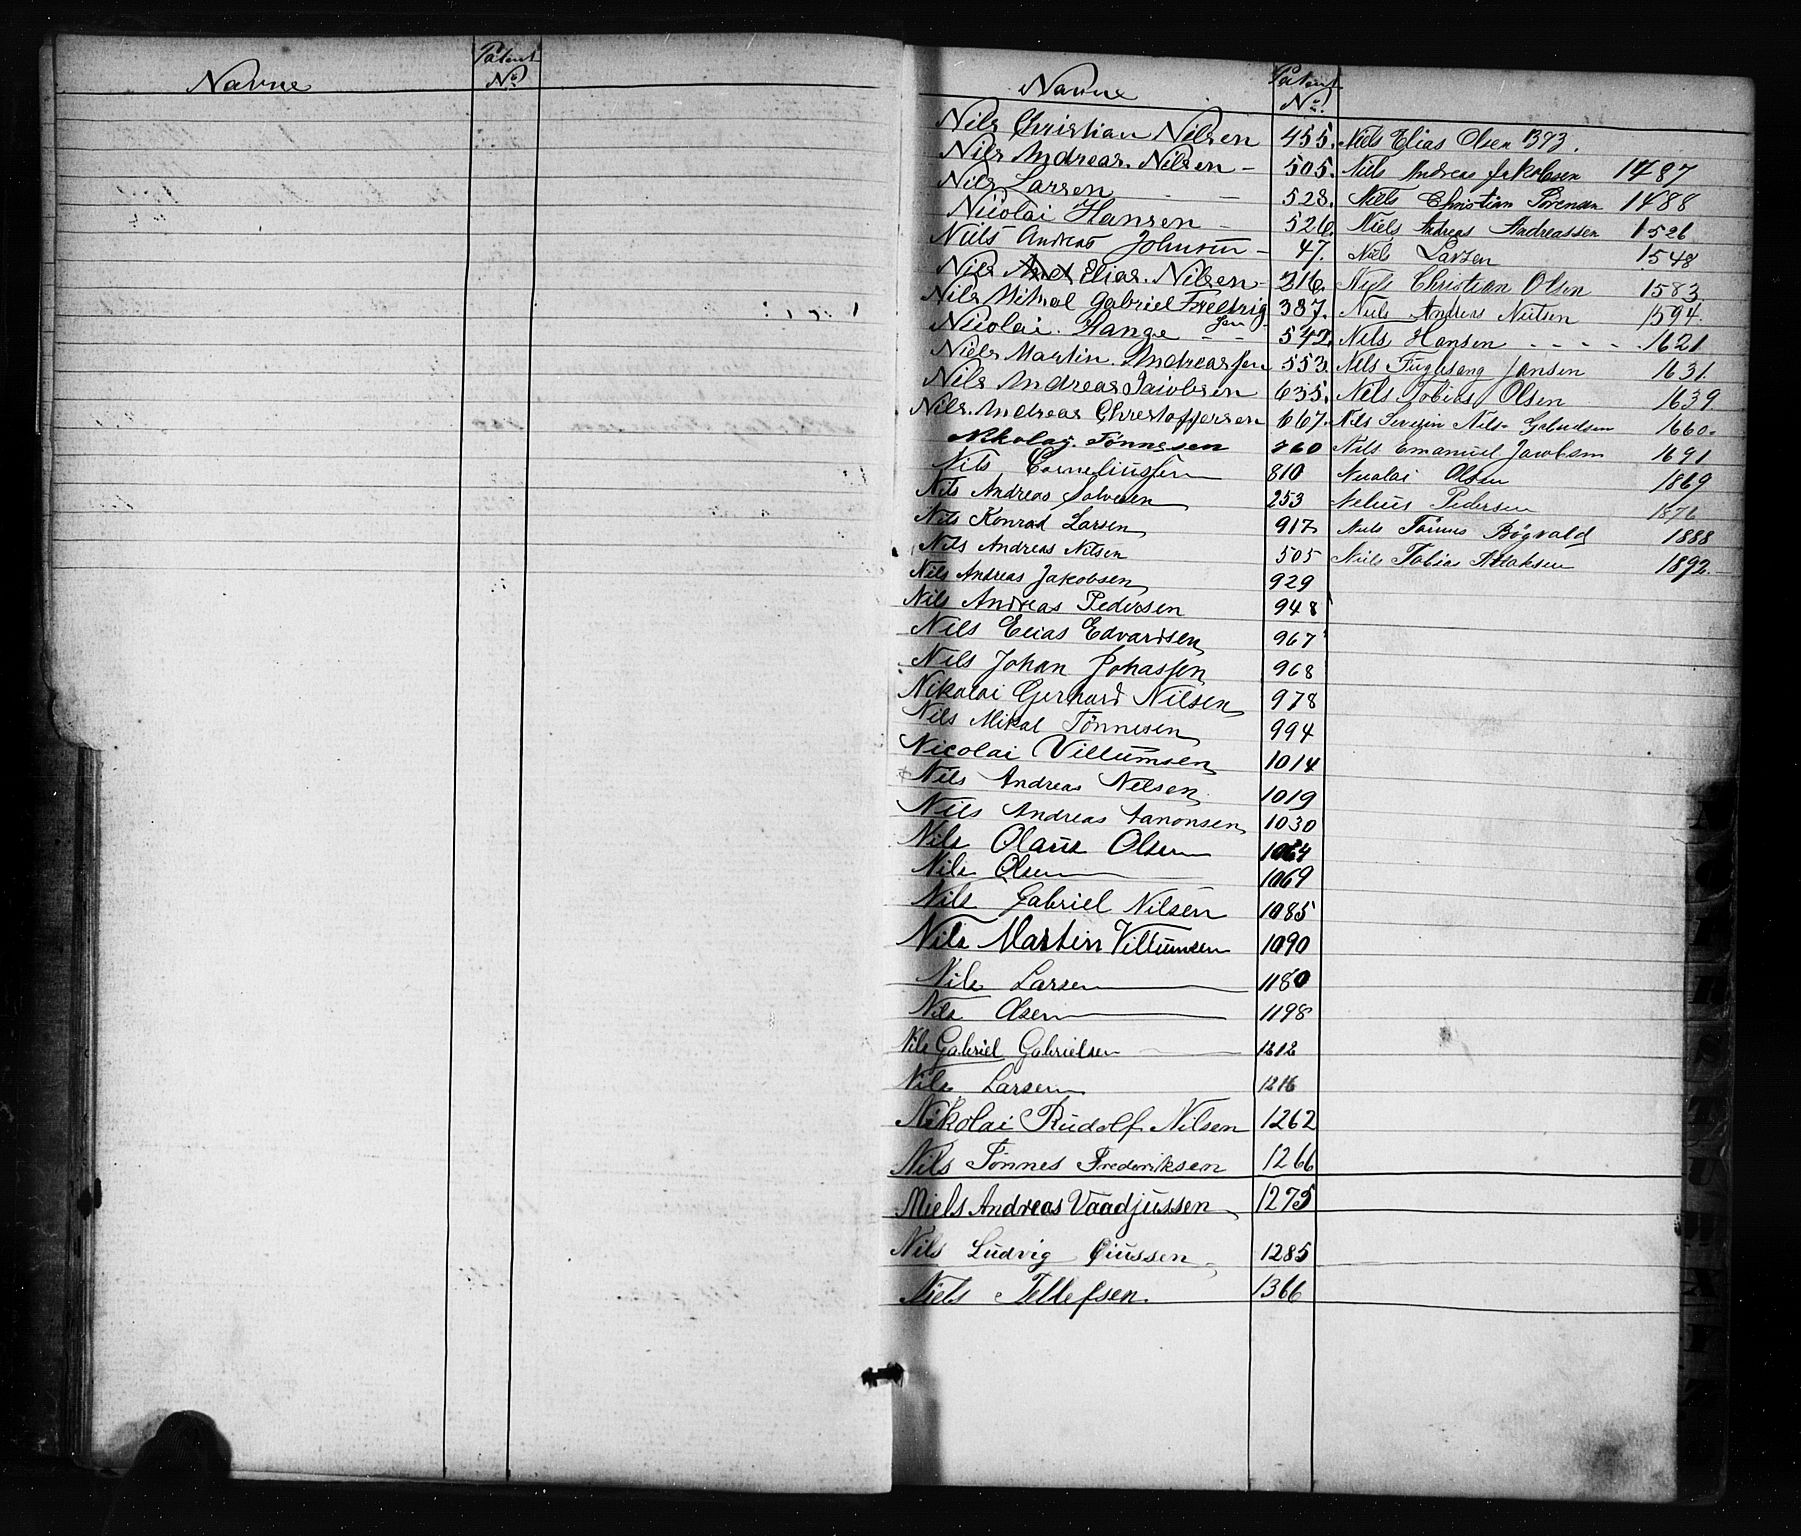 Navne
Patent
No.
Navne
Patent
No.
Nils Christian Nilsen 455.
Nils Andreas. Nilsen - 505.
Nils Larsen - - 528.
Nicolai Hansen - 526.
Niels Andreas Johnsen - 47.
Nils And Elias. Nilsen - 216.
Nils Mikal Gabriel Fredrig
sen - 387.
Nicolai. Lange - - 542.
Niels Martin. Andreassen 553.
Nils Andreas Jacobsen 635.
Nils. Andreas Christoffersen 667.
Nikolay. Tønnesen 760
Nils Corneliussen 810
Nils Andreas Salvesen 253
Nils Konrad Larsen 917
Nils Andreas Nilsen 505
Nils Andreas Jakobsen 929
Nils Andreas Pedersen 948
Nils Elias Edvardsen 967
Nils Johan Johassen 968
Nikolai Gerhard Nilsen 978
Nils Mikal Tønnesen 994
Nicolai Villumsen 1014
Nils Andreas Nelsen 1019
Nils Andreas Aanonsen 1030
Nils Olaus Olsen 1064
Nils Olsen 1069
Nils Gabriel Nilsen 1085
Nils Martin Villumsen 1090
Nils Larsen 1180
Nils Olsen 1198
Nils Gabriel Gabrielsen 1212
Nils Larsen 1216
Nikolai Rudolf Nilsen 1262
Nils Tønnes Frederiksen 1266
Niels Andreas Vaadjussen 1275
Nils Ludvig 1285
Niels Tellefsen. 1366
Niels Elias Olsen 1393.
Nils Andreas Jakobsen 1487
Niels Christian Sørensen 1488
Niels Andreas Andreassen 1526
Niels Larsen 1548
Niels Christian Olsen 1583.
Niels Anders Nilsen 1594.
Nils Hansen - - - - . 1621
Nils Fuglesang Jansen 1631.
Nils Tobias Olsen 1639.
Nils Severin Nils- 1660.
Nils Emanuel Jacobsen 1691
Nicolai Olsen 1869
Nelius Pedersen 1876
Niels Tønnes Bøgvald 1888
Niels Tobias 1892.
N
O
P
R
S
T
U
W